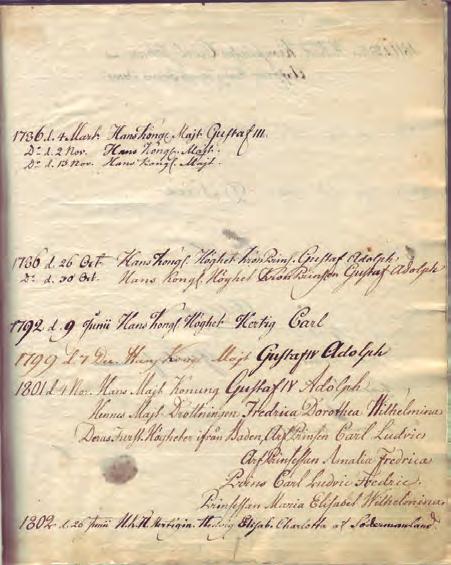 1786 d. 4 Mart Hans Kongl. Majt Gustaf III.
Do d. 2 Nov. Hans Kongl. Majt.
Do d. 13 Nov. Hans Kongl. Majt.
1786 d. 26 Oct Hans Kongl. Höghet KronPrins. Gustaf Adolph
Do d. 30 Oct. Hans Kongl. Höghet KronPrinsen Gustaf Adolph
1792 d. 9 Junii Hans Kongl. Höghet Hertig Carl
1799 d. 7 Hans Kong Majt Gustaf IV Adolph
1801 d. 4 Nov. Hans Majt Konung Gustaf IV Adolph
Hennes Majt Drottningen Fredrica Dorothea Wilhelmina
Deras Furstl. Högheter ifrån Baden, ArfPrinsen Carl Ludvic
ArfPrinsessan Amalia Fredrica
Prinsen Carl Ludvic Fredric.
Prinsessan Maria Elisabet Wilhelmina
1802 d. 26 Junii H.K.H. Hertigin. Hedvig Elisab. Charlotta af Södermanland.